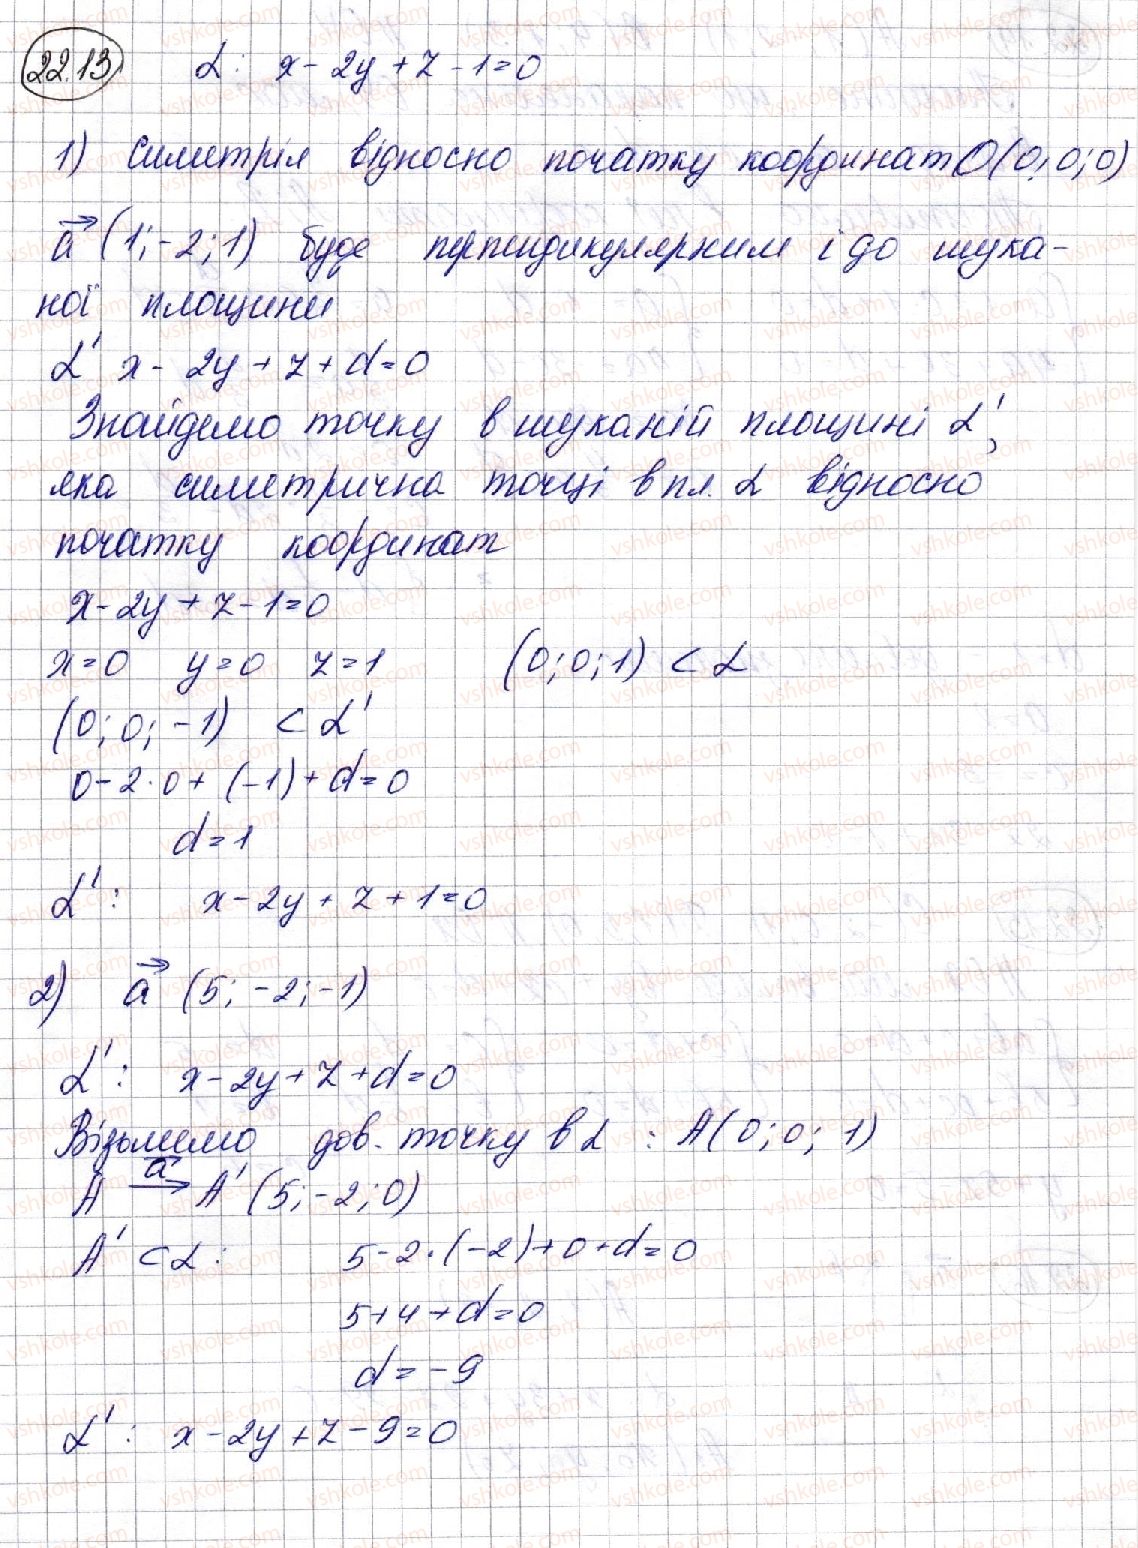 22.13 α: x - 2y + z - 1 = 0
1) Симетрія відносно початку координат O(0; 0; 0)
a⃗ (1; -2; 1) буде перпендикулярним і до шука-
ної площини
α' x - 2y + z + d = 0
Знайдемо точку в шуканій площині α',
яка симетрична точці в пл. α відносно
початку координат
x - 2y + z - 1 = 0
x = 0 y = 0 z = 1 (0; 0; 1) ⊂ α
(0; 0; -1) ⊂ α'
0 - 2·0 + (-1) + d = 0
d = 1
α': x - 2y + z + 1 = 0
2) a⃗ (5; -2; -1)
α': x - 2y + z + d = 0
Візьмемо дов. точку в α: A(0; 0; 1)
A →a⃗ A' (5; -2; 0)
A' ⊂ α: 5 - 2·(-2) + 0 + d = 0
5 + 4 + d = 0
d = -9
α': x - 2y + z - 9 = 0